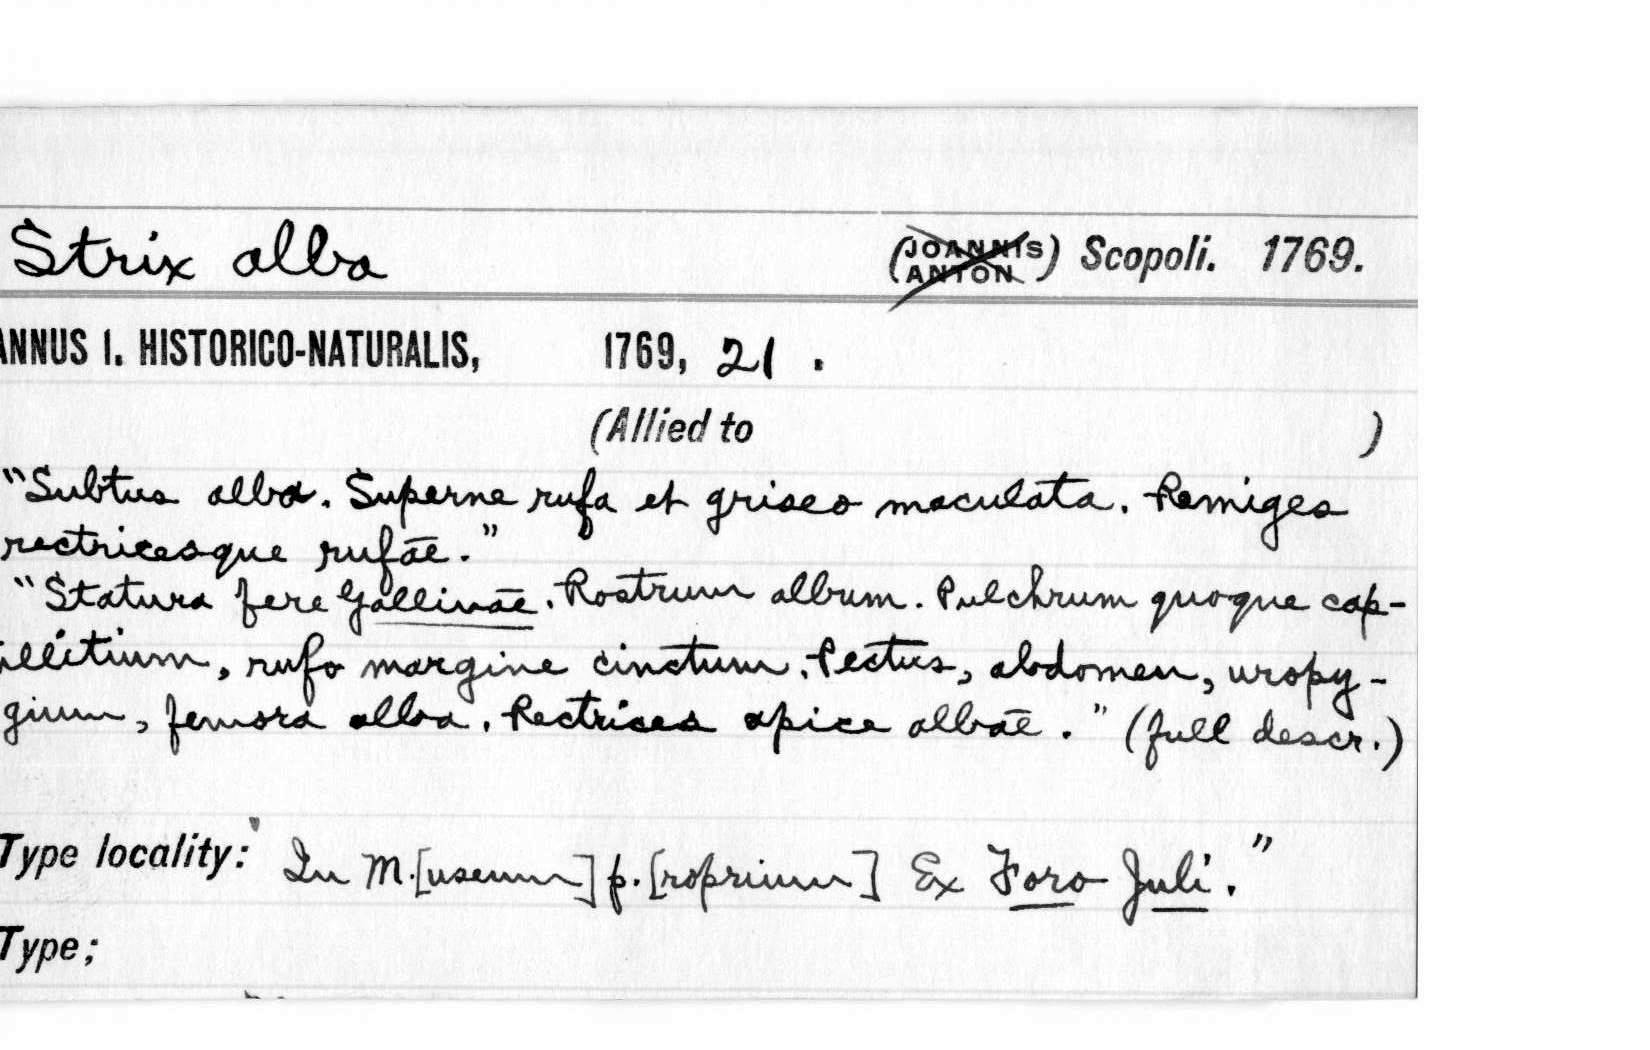 Strix alba (JOANNIS ANTON) Scopoli. 1769.
ANNUS I. HISTORICO-NATURALIS, 1769, 21 .
(Allied to )
"Subtus alba. Superne rufa et griseo maculata. Remiges
rectricesque rufae."
"Statura fere Gallinae. Rostrum album. Pulchrum quoque cap-
illitium, rufo margine cinctum. Pectus, abdomen, uropy-
gium, femora alba. Rectrices apice albae." (full descr.)
Type locality: "In M.[useum] p.[roprium] Ex Foro Juli."
Type;